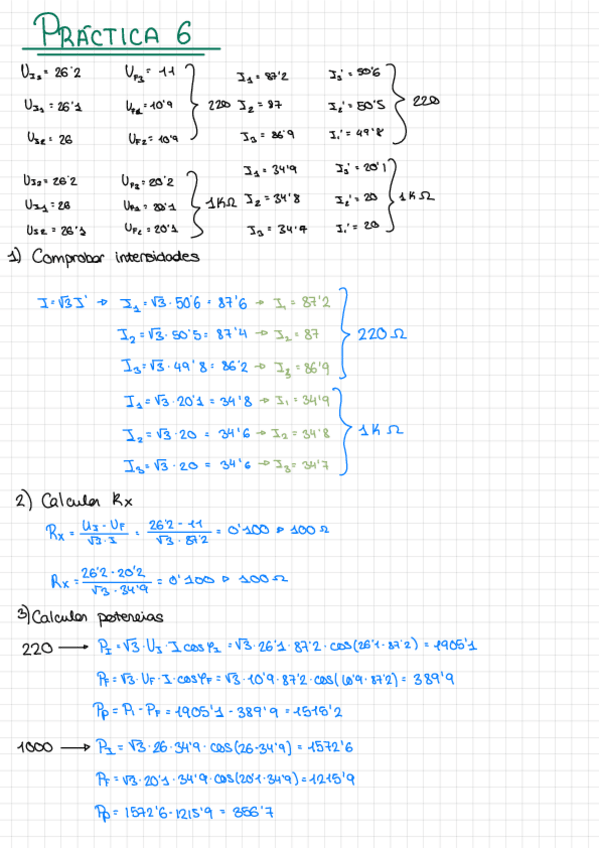 PRÁCTICA 6
U_I3 = 26'2 U_F3 = 11 I_1 = 87'2 I_3' = 50'6
U_I1 = 26'1 U_F1 = 10'9 220 I_2 = 87 I_2' = 50'5 220
U_I2 = 26 U_F2 = 10'9 I_3 = 86'9 I_1' = 49'8
U_I3 = 26'2 U_F3 = 20'2 I_1 = 34'9 I_3' = 20'1
U_I1 = 26 U_F1 = 20'1 1KΩ I_2 = 34'8 I_2' = 20 1KΩ
U_I2 = 26'1 U_F2 = 20'1 I_3 = 34'7 I_1' = 20
1) Comprobar intensidades
I = √3 I' → I_1 = √3 · 50'6 = 87'6 → I_1 = 87'2
I_2 = √3 · 50'5 = 87'4 → I_2 = 87 220Ω
I_3 = √3 · 49'8 = 86'2 → I_3 = 86'9
I_1 = √3 · 20'1 = 34'8 → I_1 = 34'9
I_2 = √3 · 20 = 34'6 → I_2 = 34'8 1KΩ
I_3 = √3 · 20 = 34'6 → I_3 = 34'7
2) Calcular Rx
Rx = (U_I - U_F)/(√3 · I) = (26'2 - 11)/(√3 · 87'2) = 0'100 → 100Ω
Rx = (26'2 - 20'2)/(√3 · 34'9) = 0'100 → 100Ω
3) Calcular potencias
220 → P_I = √3 · U_I · I cos φ_I = √3 · 26'1 · 87'2 · cos(26'1 · 87'2) = 1905'1
P_F = √3 · U_F · I · cos φ_F = √3 · 10'9 · 87'2 · cos(10'9 · 87'2) = 389'9
P_P = P_I - P_F = 1905'1 - 389'9 = 1515'2
1000 → P_I = √3 · 26 · 34'9 · cos(26 · 34'9) = 1572'6
P_F = √3 · 20'1 · 34'9 · cos(20'1 · 34'9) = 1215'9
P_P = 1572'6 - 1215'9 = 356'7